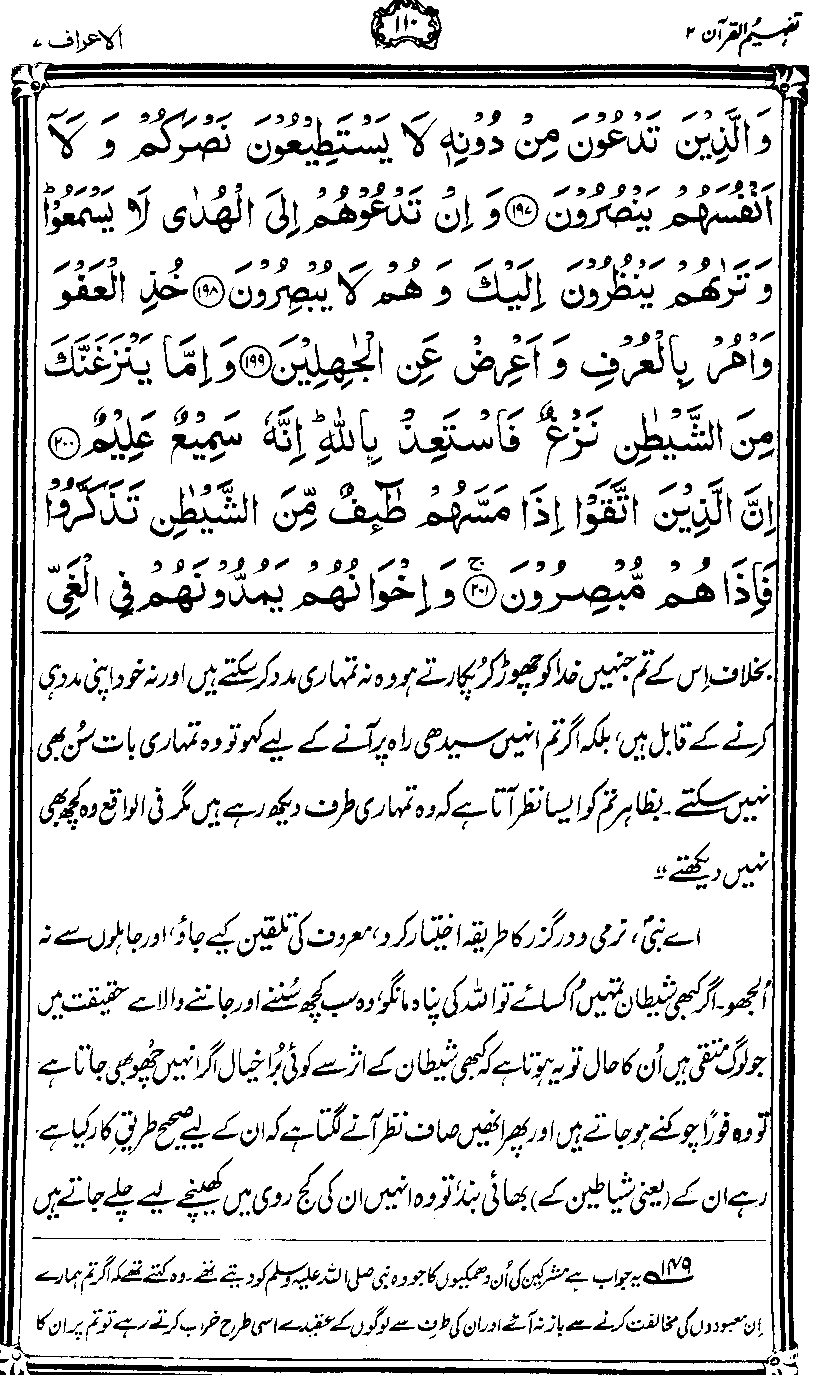 تفہیم القرآن ۲
۱۱۰
الاعراف ۷
وَالَّذِيْنَ تَدْعُوْنَ مِنْ دُوْنِهٖ لَا يَسْتَطِيْعُوْنَ نَصْرَكُمْ وَ لَاۤ
اَنْفُسَهُمْ يَنْصُرُوْنَ ﴿۱۹۷﴾ وَ اِنْ تَدْعُوْهُمْ اِلَى الْهُدٰى لَا يَسْمَعُوْا ؕ
وَ تَرٰىهُمْ يَنْظُرُوْنَ اِلَيْكَ وَ هُمْ لَا يُبْصِرُوْنَ ﴿۱۹۸﴾ خُذِ الْعَفْوَ
وَاْمُرْ بِالْعُرْفِ وَ اَعْرِضْ عَنِ الْجٰهِلِيْنَ ﴿۱۹۹﴾ وَ اِمَّا يَنْزَغَنَّكَ
مِنَ الشَّيْطٰنِ نَزْغٌ فَاسْتَعِذْ بِاللّٰهِ ؕ اِنَّهٗ سَمِيْعٌ عَلِيْمٌ ﴿۲۰۰﴾
اِنَّ الَّذِيْنَ اتَّقَوْا اِذَا مَسَّهُمْ طٰٓئِفٌ مِّنَ الشَّيْطٰنِ تَذَكَّرُوْا
فَاِذَا هُمْ مُّبْصِرُوْنَ ۚ﴿۲۰۱﴾ وَ اِخْوَانُهُمْ يَمُدُّوْنَهُمْ فِى الْغَىِّ
بخلاف اِس کے تم جنہیں خدا کو چھوڑ کر پکارتے ہو وہ نہ تمہاری مدد کر سکتے ہیں اور نہ خود اپنی مدد ہی
کرنے کے قابل ہیں، بلکہ اگر تم انہیں سیدھی راہ پر آنے کے لیے کہو تو وہ تمہاری بات سُن بھی
نہیں سکتے۔ بظاہر تم کو ایسا نظر آتا ہے کہ وہ تمہاری طرف دیکھ رہے ہیں مگر فی الواقع وہ کچھ بھی
نہیں دیکھتے"
اے نبیؐ، نرمی و درگزر کا طریقہ اختیار کرو، معروف کی تلقین کیے جاؤ، اور جاہلوں سے نہ
اُلجھو۔ اگر کبھی شیطان تمہیں اُکسائے تو اللہ کی پناہ مانگو، وہ سب کچھ سُننے اور جاننے والا ہے حقیقت میں
جو لوگ متقی ہیں اُن کا حال تو یہ ہوتا ہے کہ کبھی شیطان کے اثر سے کوئی بُرا خیال اگر انہیں چُھو بھی جاتا ہے
تو وہ فوراً چوکنے ہو جاتے ہیں اور پھر انہیں صاف نظر آنے لگتا ہے کہ ان کے لیے صحیح طریقِ کار کیا ہے۔
رہے ان کے (یعنی شیاطین کے) بھائی بند، تو وہ انہیں ان کی کج روی میں کھینچے لیے چلے جاتے ہیں
۱۴۹ یہ جواب ہے مشرکین کی اُن دھمکیوں کا جو وہ نبی صلی اللہ علیہ وسلم کو دیتے تھے۔ وہ کہتے تھے کہ اگر تم ہمارے
اِن معبودوں کی مخالفت کرنے سے باز نہ آئے اور ان کی طرف سے لوگوں کے عقیدے اسی طرح خراب کرتے رہے تو تم پر ان کا